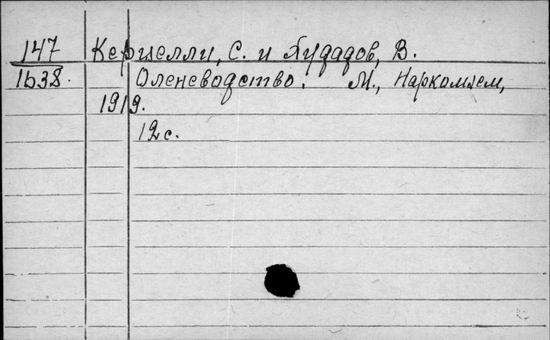 147 Керцелли, С. и Худадов, В.
1638. Оленеводство. М., Наркомзем,
1919.
12с.